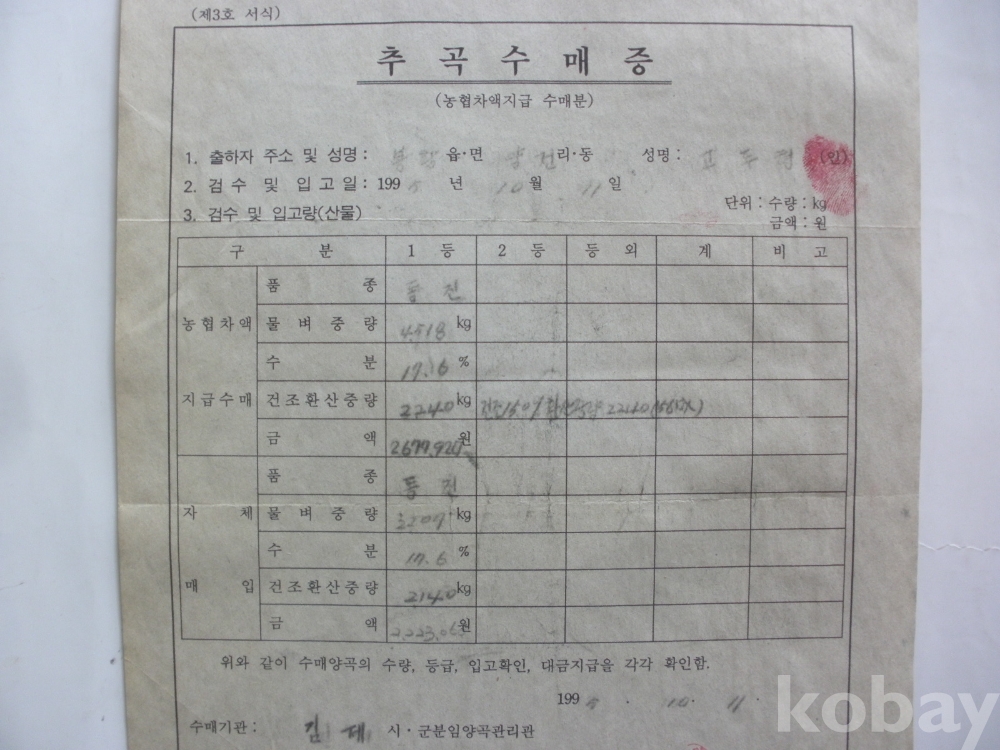 (제3호 서식)
추 곡 수 매 증
(농협차액지급 수매분)
1. 출하자 주소 및 성명 : 봉 읍·면 리·동 성명 : (인)
2. 검 수 및 입 고 일 : 1995 년 10 월 11 일
단위 : 수량 : kg
3. 검수 및 입고량(산물)
금액 : 원
구 분 1 등 2 등 등 외 계 비 고
품 종 동 진
농협차액 물 벼 중 량 4518 kg
수 분 17.6 %
지급수매 건조환산중량 kg
금 액 원
품 종 동 진
자 체 물 벼 중 량 kg
수 분 17.6 %
매 입 건조환산중량 2140 kg
금 액 원
위와 같이 수매양곡의 수량, 등급, 입고확인, 대금지급을 각각 확인함.
1995 . 10 . 11 .
수매기관 : 김 제 시 · 군분임양곡관리관
kobay